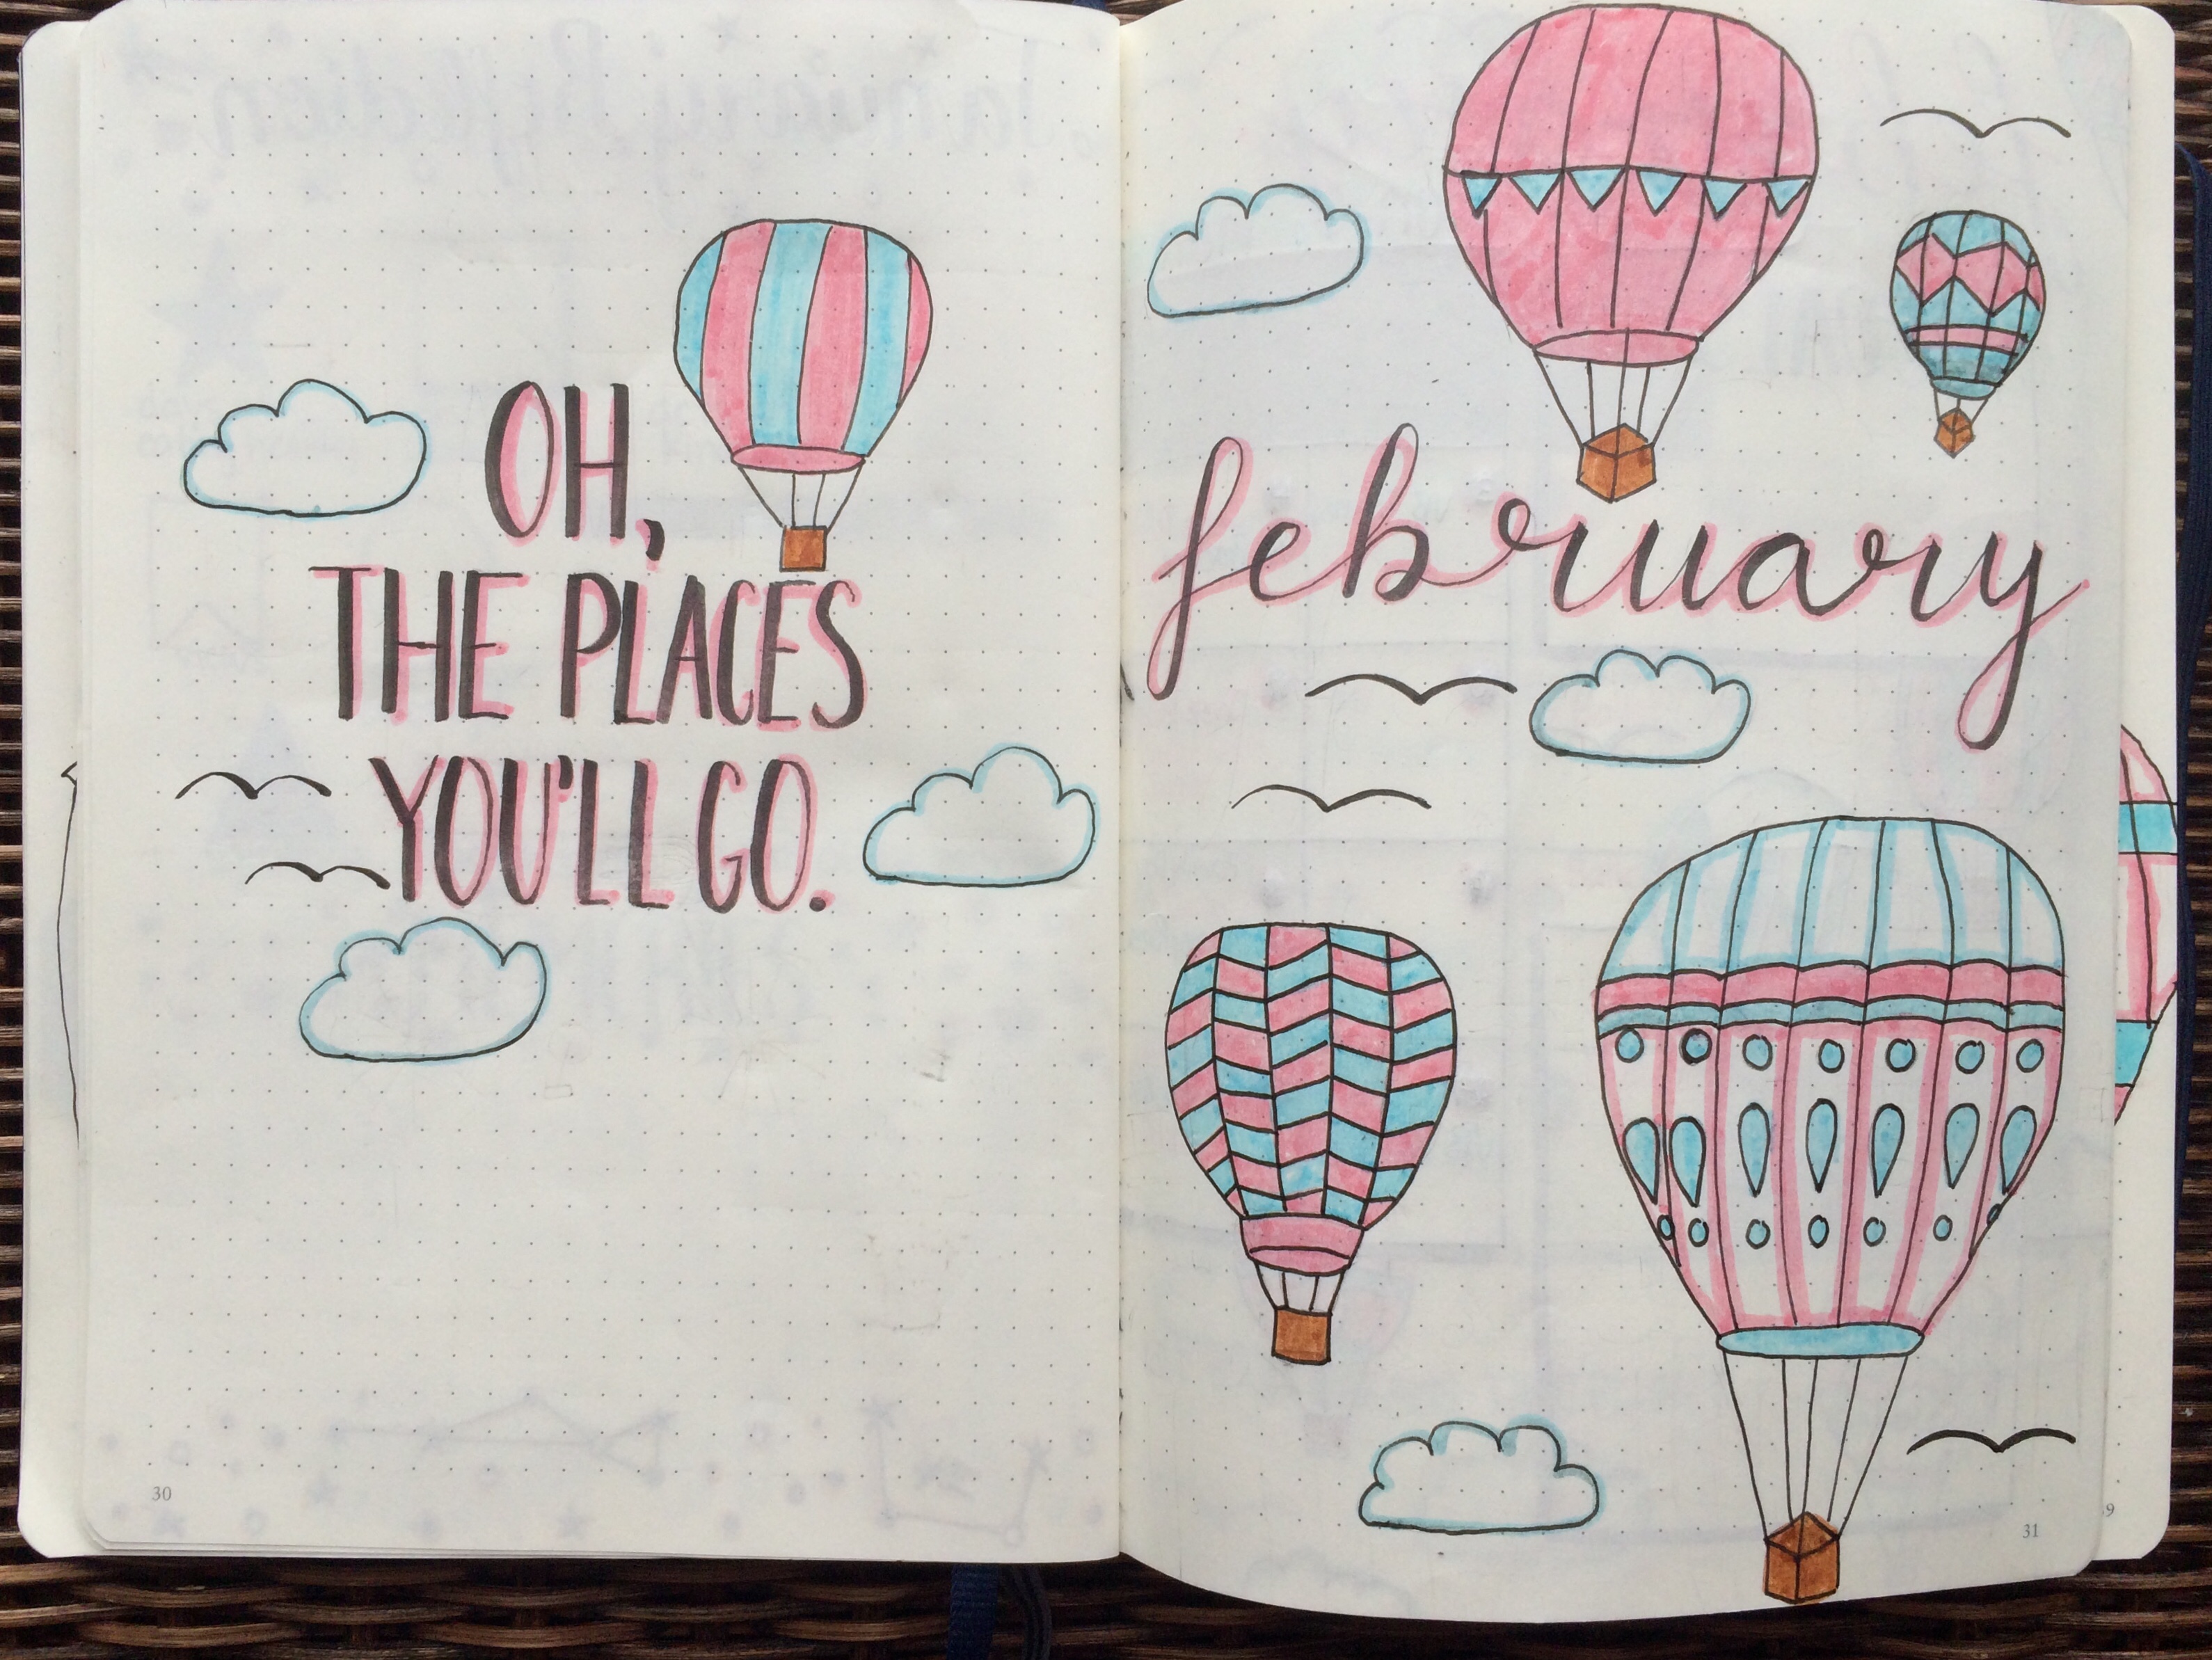 OH,
THE PLACES
YOU'LL GO.
30
february
31